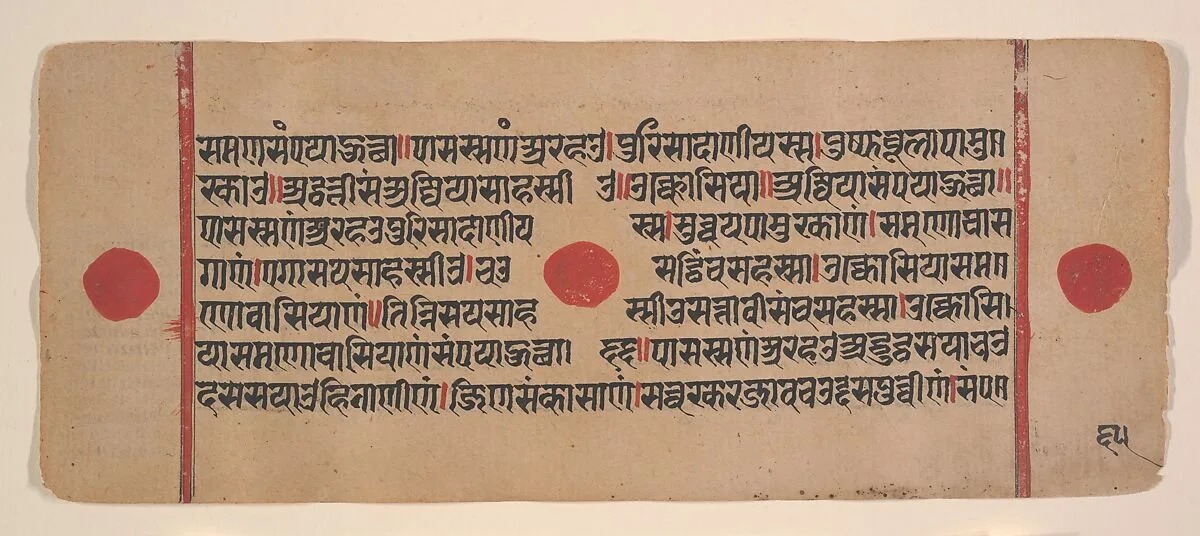 समणसंपयाऊत्था॥पासस्सणंअरहउ।पुरिसादाणीयस्स।पुप्फचूलापामु॥
रकाउ॥अट्ठत्तीसंअज्जियासाहस्सी उ॥उक्कोसिया॥अज्जियासंपयाऊत्था॥
पासस्सणंअरहउपुरिसादाणीय स्स।सुव्वयपामुरकाणं।समणोवास
गाणं।एगासयसाहस्सीउ।चउ सट्ठिंचसहस्सा।उक्कोसियासम॥
णोवासियाणं॥तिन्निसयसाह स्सीउसत्तावीसंचसहस्सा।उक्कोसि।
यासमणोवासियाणंसंपयाऊत्था। ६६॥पासस्सणंअरहउअद्धुट्ठसयाचउ
दससयाउहिनाणीणं।जिणसंकासाणं।सव्वरकर
६५